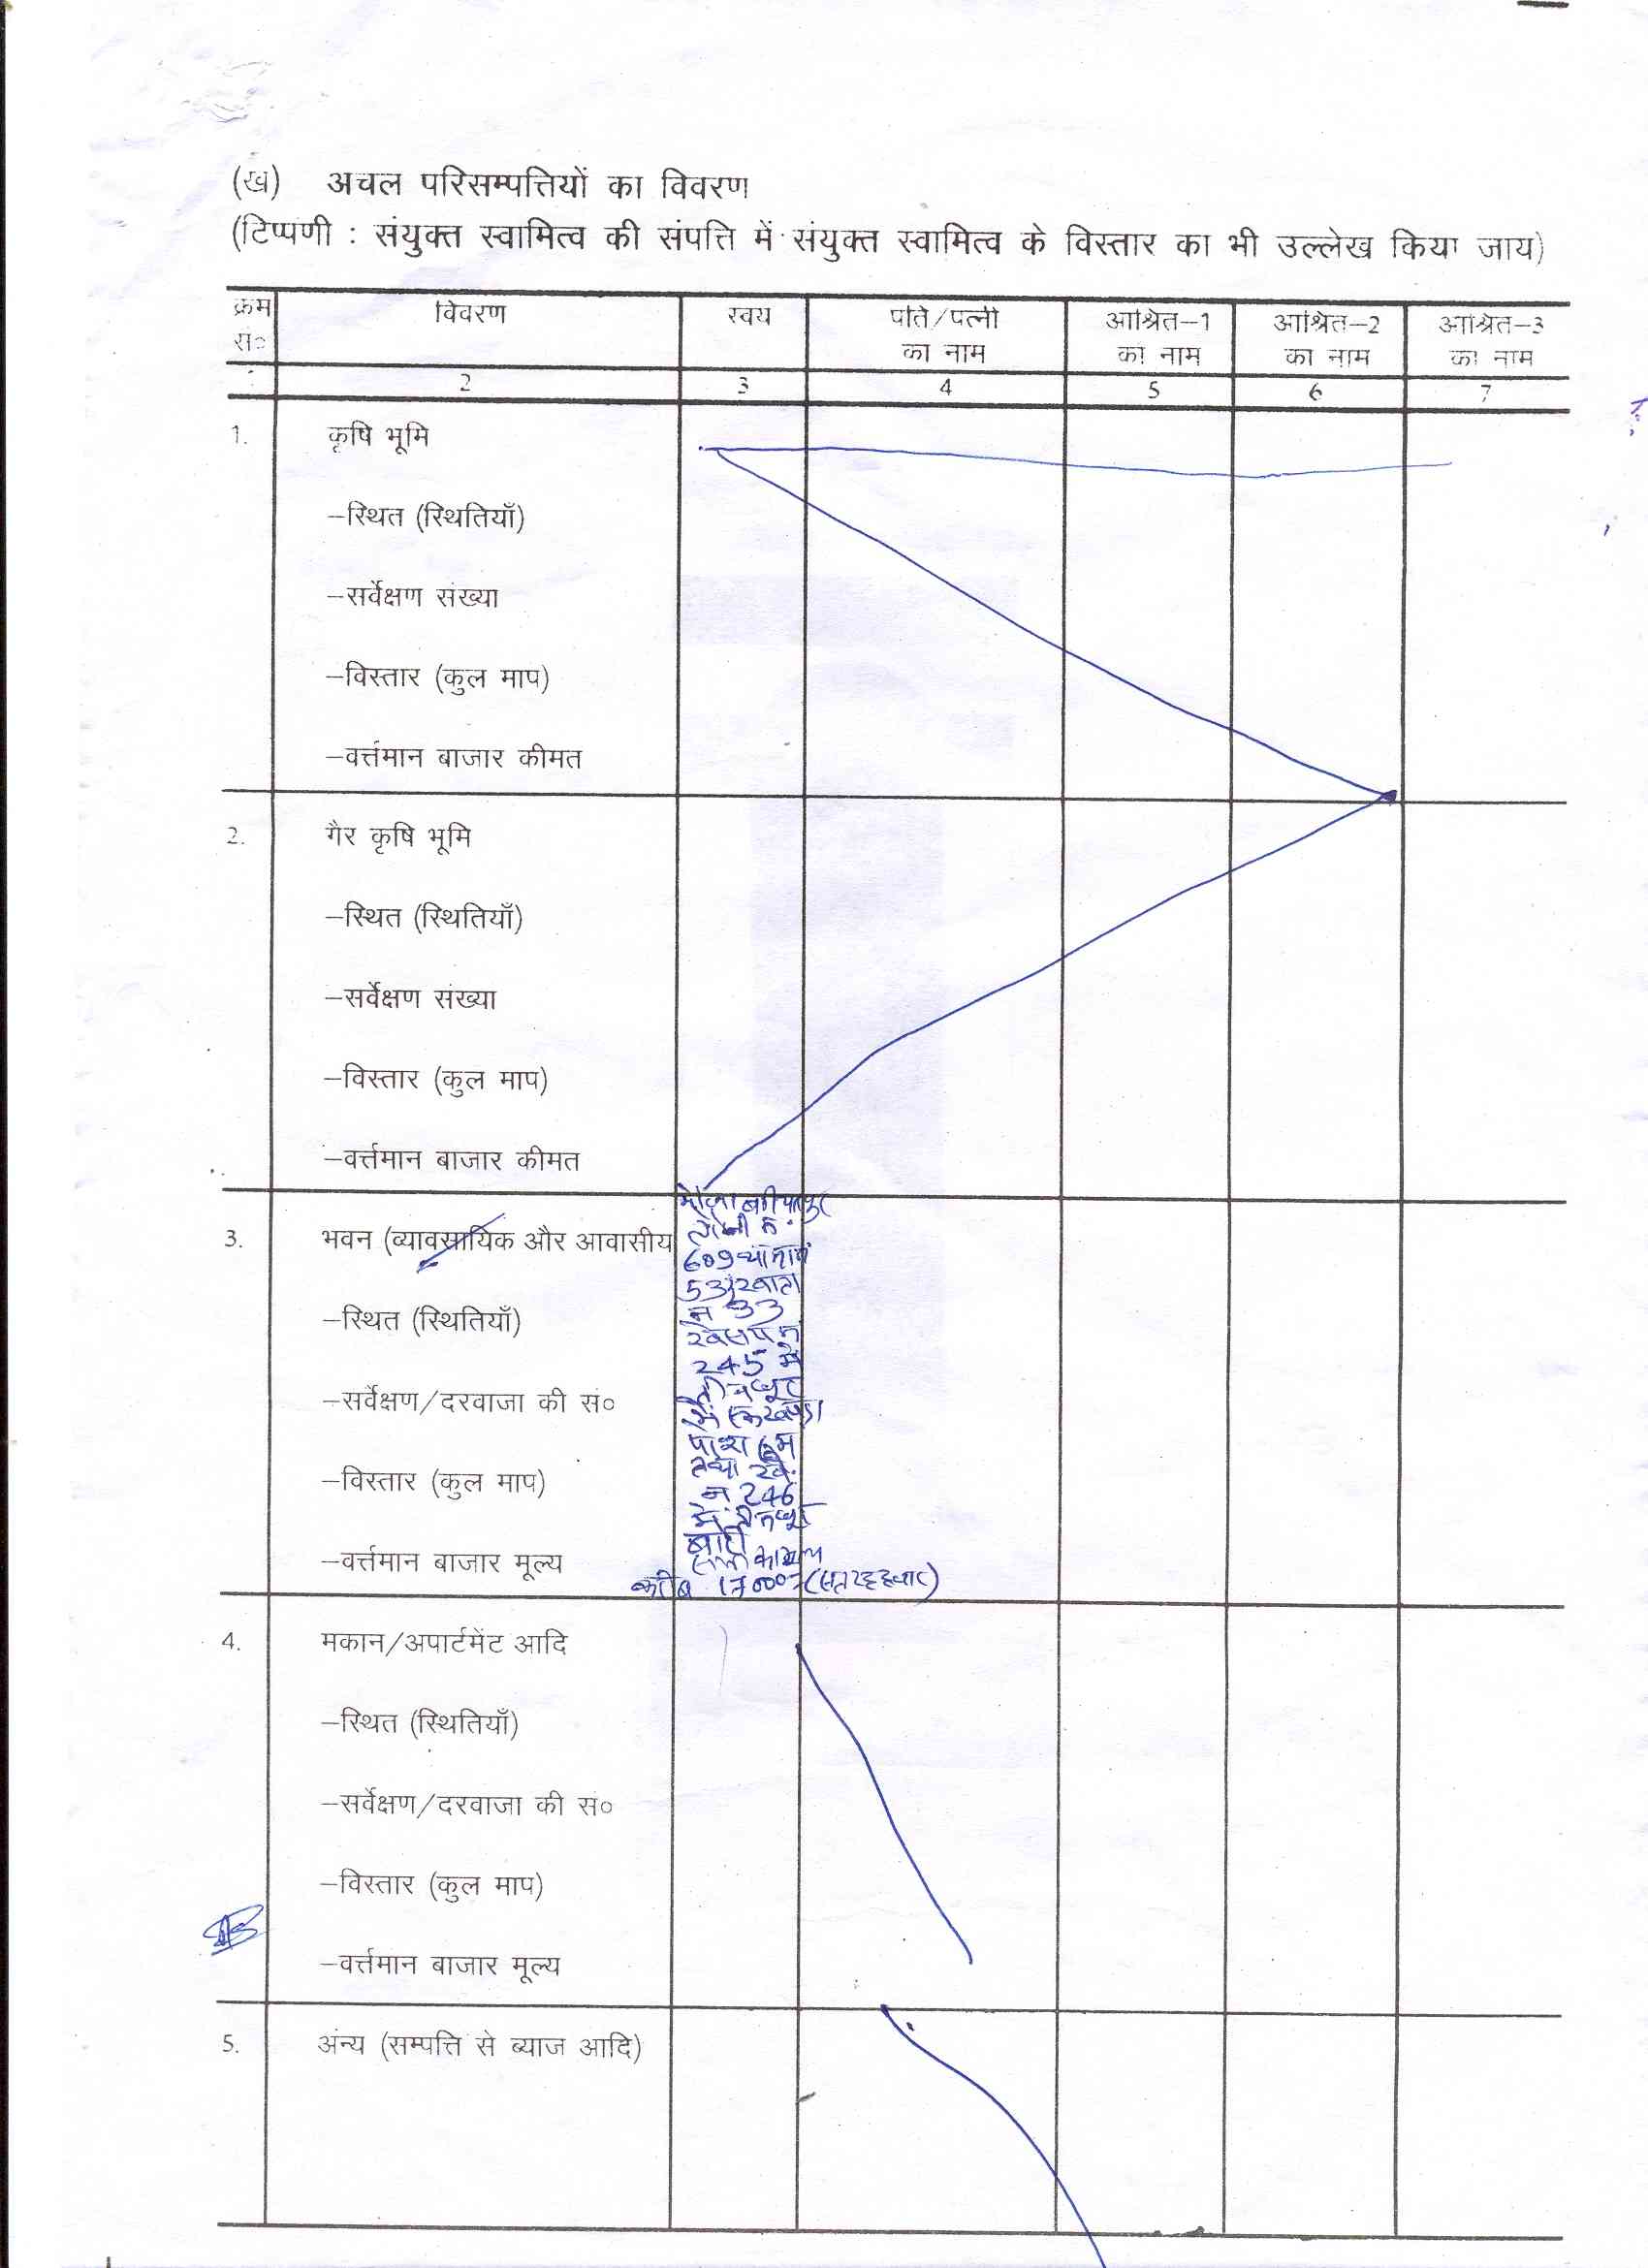 (ख) अचल परिसम्पत्तियों का विवरण
(टिप्पणी : संयुक्त स्वामित्व की संपत्ति में संयुक्त स्वामित्व के विस्तार का भी उल्लेख किया जाय)
क्रम सं० विवरण स्वयं पति/पत्नी का नाम आश्रित-1 का नाम आश्रित-2 का नाम आश्रित-3 का नाम
2 3 4 5 6 7
1. कृषि भूमि
-स्थित (स्थितियाँ)
-सर्वेक्षण संख्या
-विस्तार (कुल माप)
-वर्त्तमान बाजार कीमत
2. गैर कृषि भूमि
-स्थित (स्थितियाँ)
-सर्वेक्षण संख्या
-विस्तार (कुल माप)
-वर्त्तमान बाजार कीमत
3. भवन (व्यावसायिक और आवासीय
-स्थित (स्थितियाँ)
-सर्वेक्षण/दरवाजा की सं०
-विस्तार (कुल माप)
-वर्त्तमान बाजार मूल्य
मौजा
609
53
न 33
245 में
तथा
न 246
में
करीब 17000
4. मकान/अपार्टमेंट आदि
-स्थित (स्थितियाँ)
-सर्वेक्षण/दरवाजा की सं०
-विस्तार (कुल माप)
-वर्त्तमान बाजार मूल्य
5. अंन्य (सम्पत्ति से ब्याज आदि)